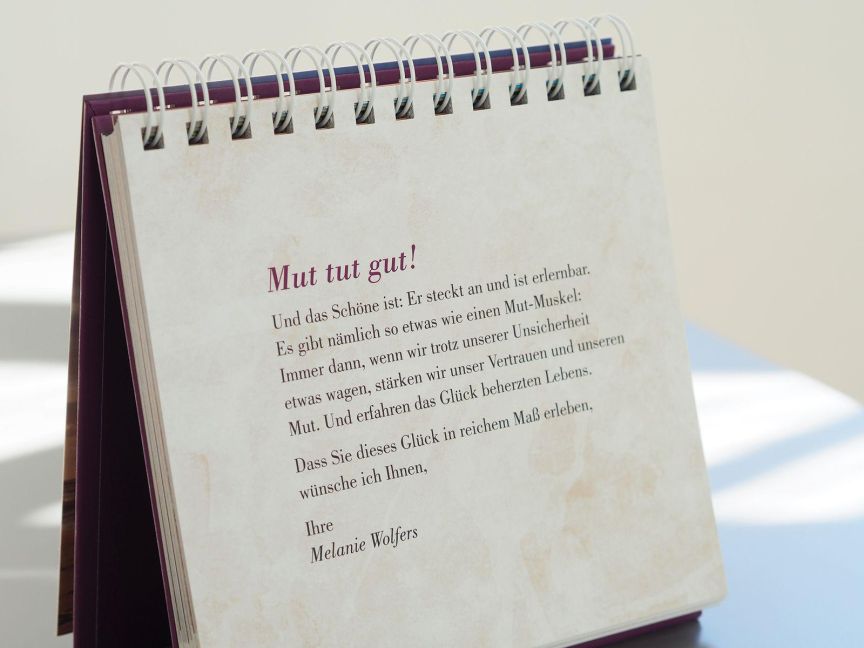 Mut tut gut!
Und das Schöne ist: Er steckt an und ist erlernbar.
Es gibt nämlich so etwas wie einen Mut-Muskel:
Immer dann, wenn wir trotz unserer Unsicherheit
etwas wagen, stärken wir unser Vertrauen und unseren
Mut. Und erfahren das Glück beherzten Lebens.
Dass Sie dieses Glück in reichem Maß erleben,
wünsche ich Ihnen,
Ihre
Melanie Wolfers